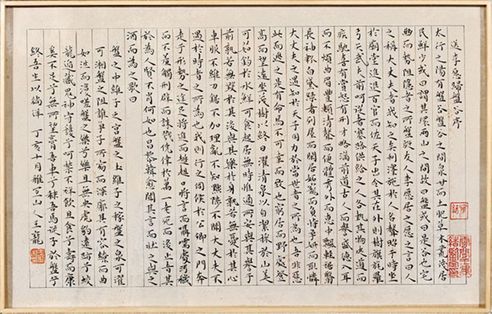 送李愿歸盤谷序
太行之陽有盤谷盤谷之間泉甘而土肥草木藂茂居
民鮮少或曰謂其環兩山之間故曰盤或曰是谷也宅
幽而勢阻隱者之所盤旋友人李愿居之愿之言曰人
之稱大丈夫者我知之矣利澤施於人名聲昭於時坐
於廟堂進退百官而佐天子出令其在外則樹旗旄羅
弓矢武夫前呵從者塞途供給之人各執其物夾道而
疾馳喜有賞怒有刑才畯滿前道古今而譽盛德入耳
而不煩曲眉豐頰清聲而便體秀外而惠中飄輕裾翳
長袖粉白黛綠者列屋而閒居妬寵而負恃爭妍而取憐
大丈夫之遇知於天子用力於當世者之所為也吾非惡
此而逃之是有命焉不可幸而致也窮居而野處升
高而望遠坐茂樹以終日濯清泉以自潔採於山美
可茹釣於水鮮可食起居無時惟適之安與其有譽于
前孰若無毀於其後與其有樂於身孰若無憂於其心
車服不維刀鋸不加理亂不知黜陟不聞大丈夫不
遇於時者之所為也我則行之伺候於公卿之門奔
走於形勢之途足將進而趑趄口將言而囁嚅處穢
污而不羞觸刑辟而誅戮僥倖於萬一老死而後止者其
於為人賢不肖何如也昌黎韓愈聞其言而壯之與之
酒而為之歌曰
盤之中維子之宮盤之土維子之稼盤之泉可濯
可湘盤之阻誰爭子所窈而深廓其有容繚而曲
如往而復嗟盤之樂兮樂且無央虎豹遠跡兮蛟
龍遁藏鬼神守護兮呵禁不祥飲且食兮壽而康
無不足兮奚所望膏吾車兮秣吾馬從子於盤兮
終吾生以徜徉 丁亥十月雅宜山人王寵